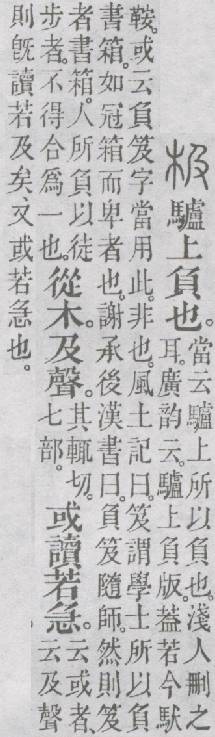 极驢上負也。當云驢上所以負也。淺人刪之
耳。廣韵云。驢上負版。葢若今馱
鞍。或云負笈字當用此。非也。風土記曰。笈謂學士所以負
書箱。如冠箱而卑者也。謝承後漢書曰。負笈隨師。然則笈
者書箱。人所負以徒
步者。不得合爲一也。從木。及聲。其輒切。
七部。或讀若急。云或者、
云及聲
則旣讀若及矣、又或若急也。